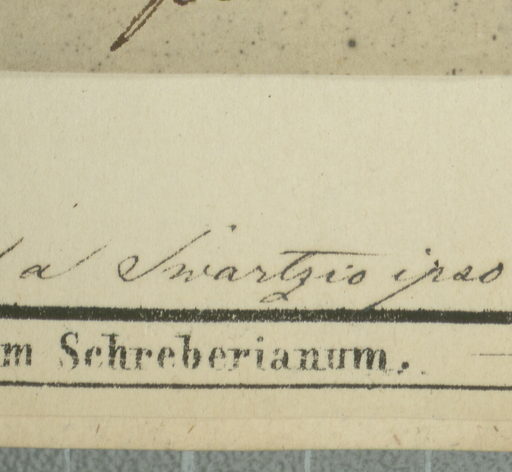 a Swartzio ipso
m Schreberianum.